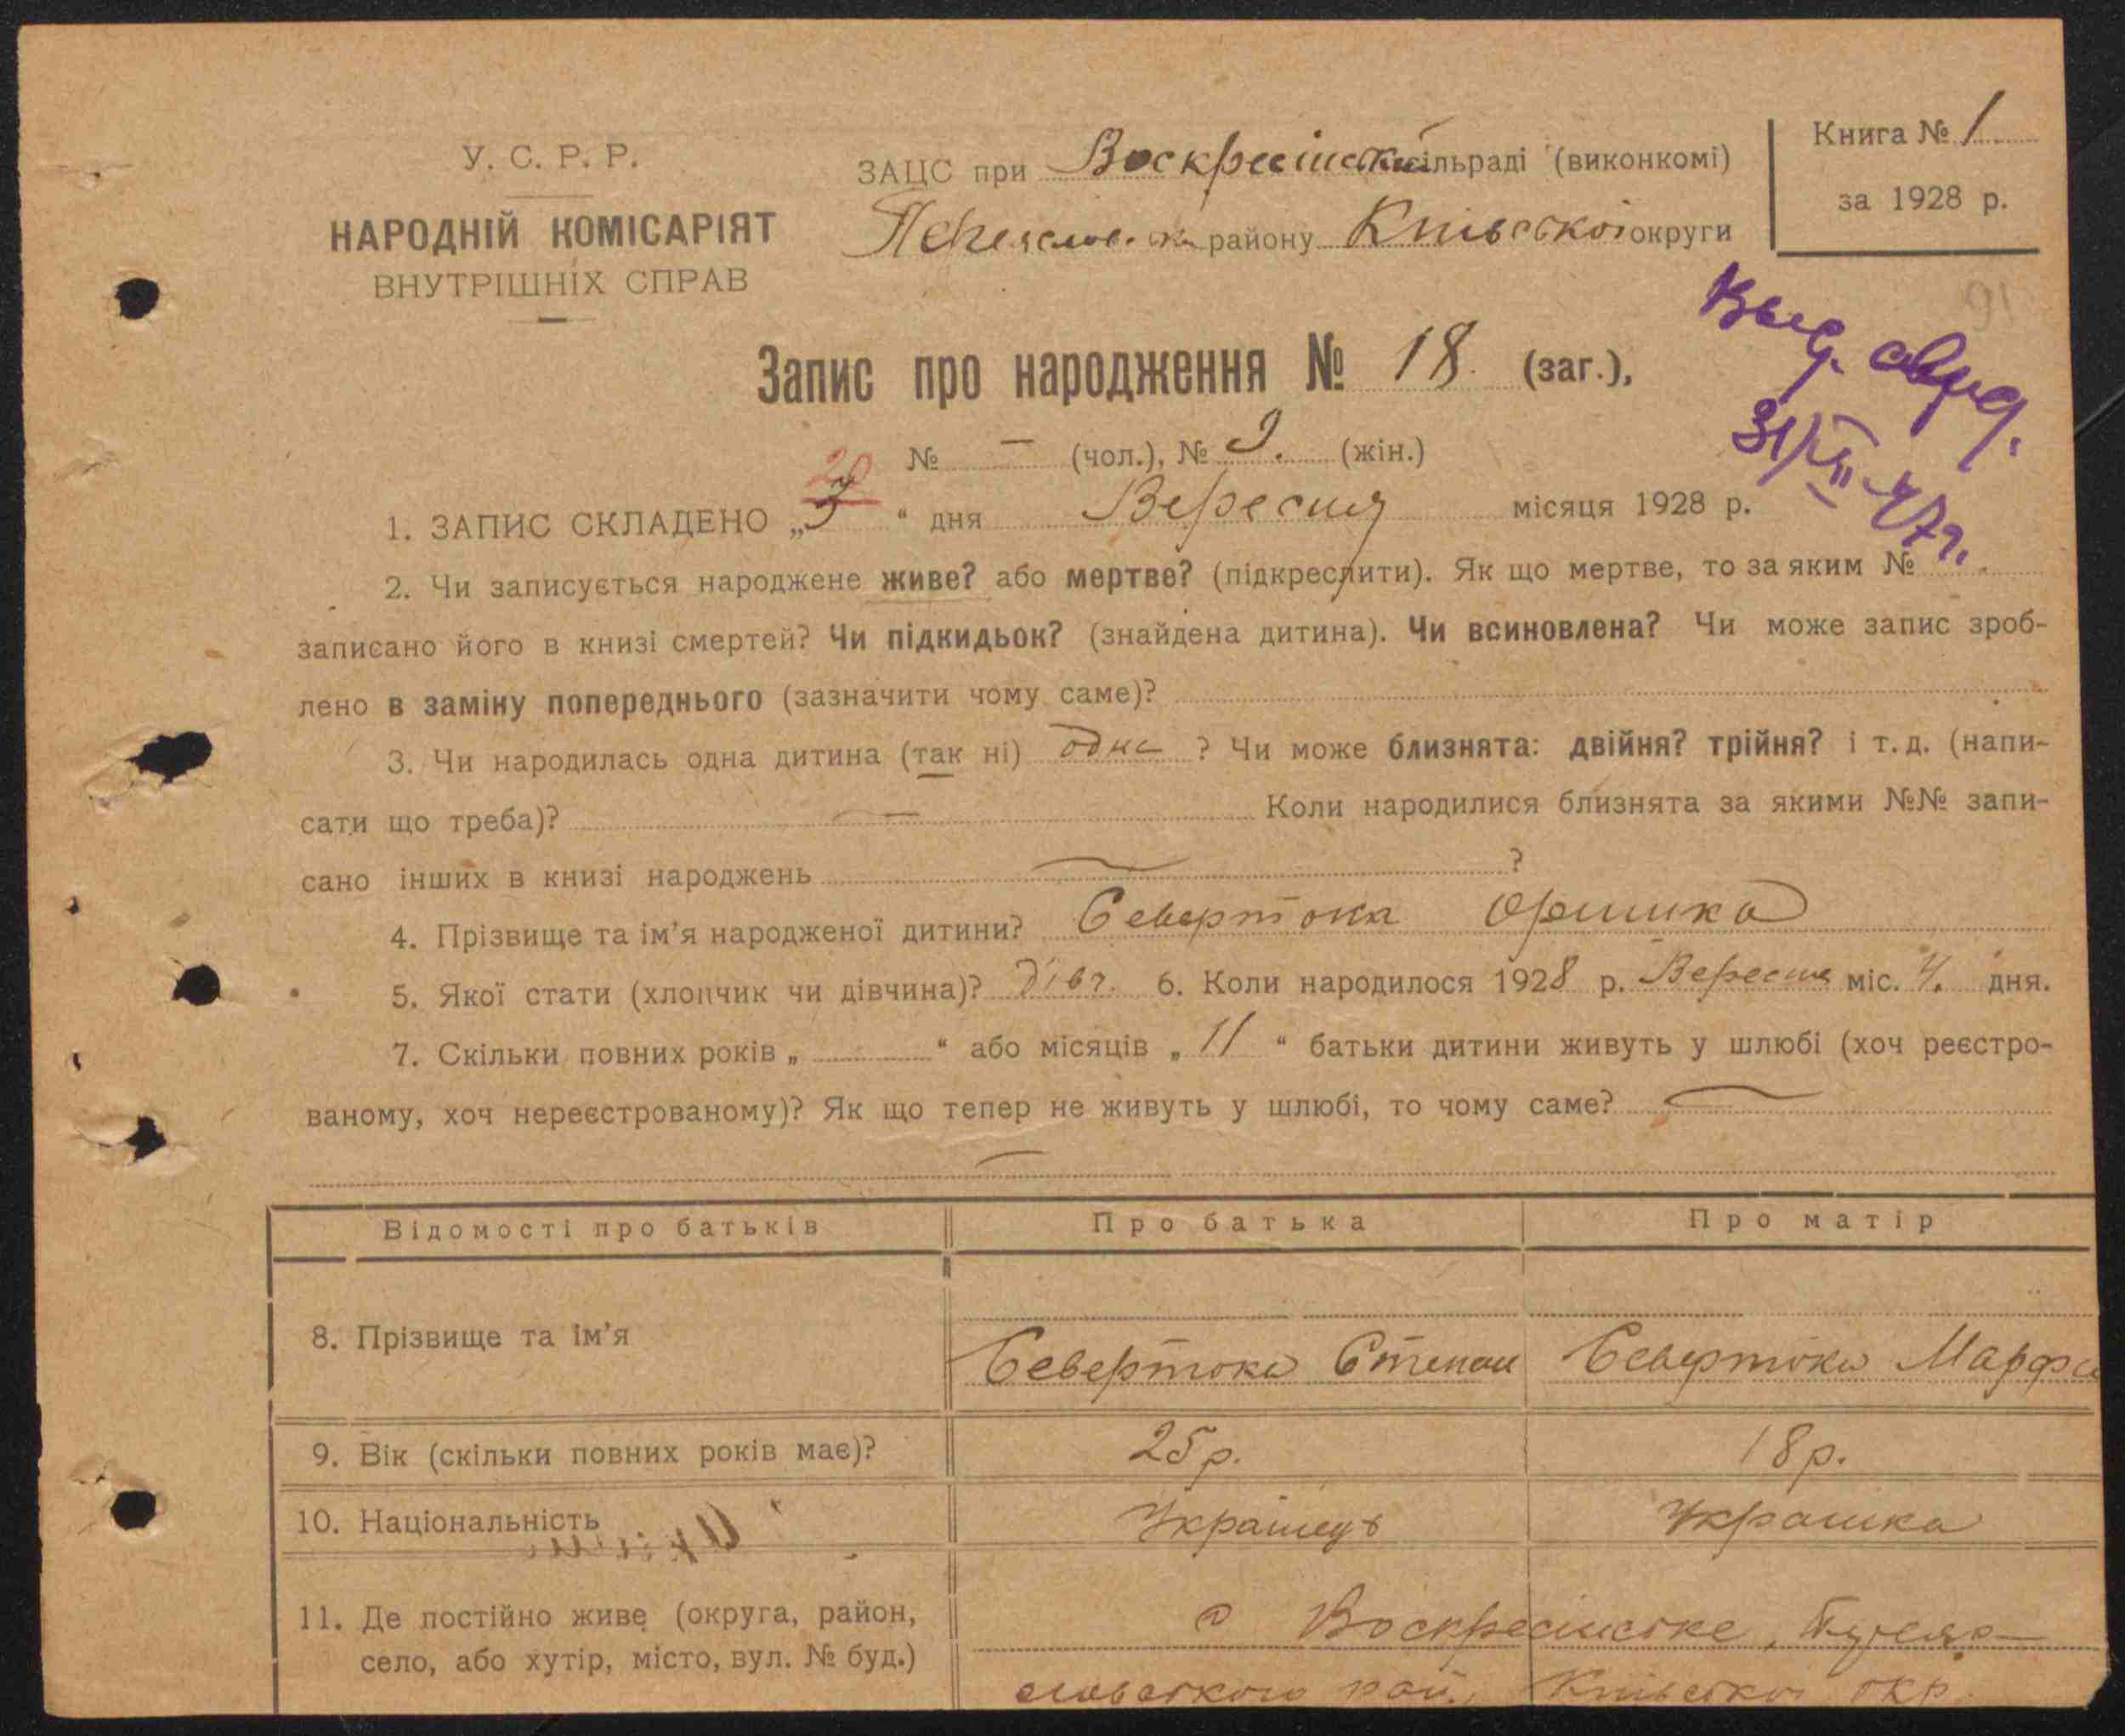 У. С. Р. Р.
НАРОДНІЙ КОМІСАРІЯТ
ВНУТРІШНІХ СПРАВ
ЗАЦС при Воскресінській сільраді (виконкомі)
району Київської округи
Книга № 1
за 1928 р.
91
Выд. свид.
Запис про народження № 18. (заг.),
№ — (чол.), № 9. (жін.)
20
1. ЗАПИС СКЛАДЕНО „3“ дня Вересня місяця 1928 р.
2. Чи записується народжене живе? або мертве? (підкреслити). Як що мертве, то за яким №
записано його в книзі смертей? Чи підкидьок? (знайдена дитина). Чи всиновлена? Чи може запис зроб-
лено в заміну попереднього (зазначити чому саме)?
3. Чи народилась одна дитина (так ні) одна ? Чи може близнята: двійня? трійня? і т. д. (напи-
сати що треба)? — Коли народилися близнята за якими №№ запи-
сано інших в книзі народжень — ?
4. Прізвище та ім’я народженої дитини? Севертока Оришка
5. Якої стати (хлопчик чи дівчина)? дівч. 6. Коли народилося 1928 р. Вересня міс. 4. дня.
7. Скільки повних років „ “ або місяців „ 11 “ батьки дитини живуть у шлюбі (хоч реєстро-
ваному, хоч нереєстрованому)? Як що тепер не живуть у шлюбі, то чому саме? —
—
Відомості про батьків Про батька Про матір
8. Прізвище та ім’я Севертока Степан Севертока Марфа
9. Вік (скільки повних років має)? 25 р. 18 р.
10. Національність Українець Українка
11. Де постійно живе (округа, район,
село, або хутір, місто, вул. № буд.)
с Воскресінське,
рай., Київської окр.